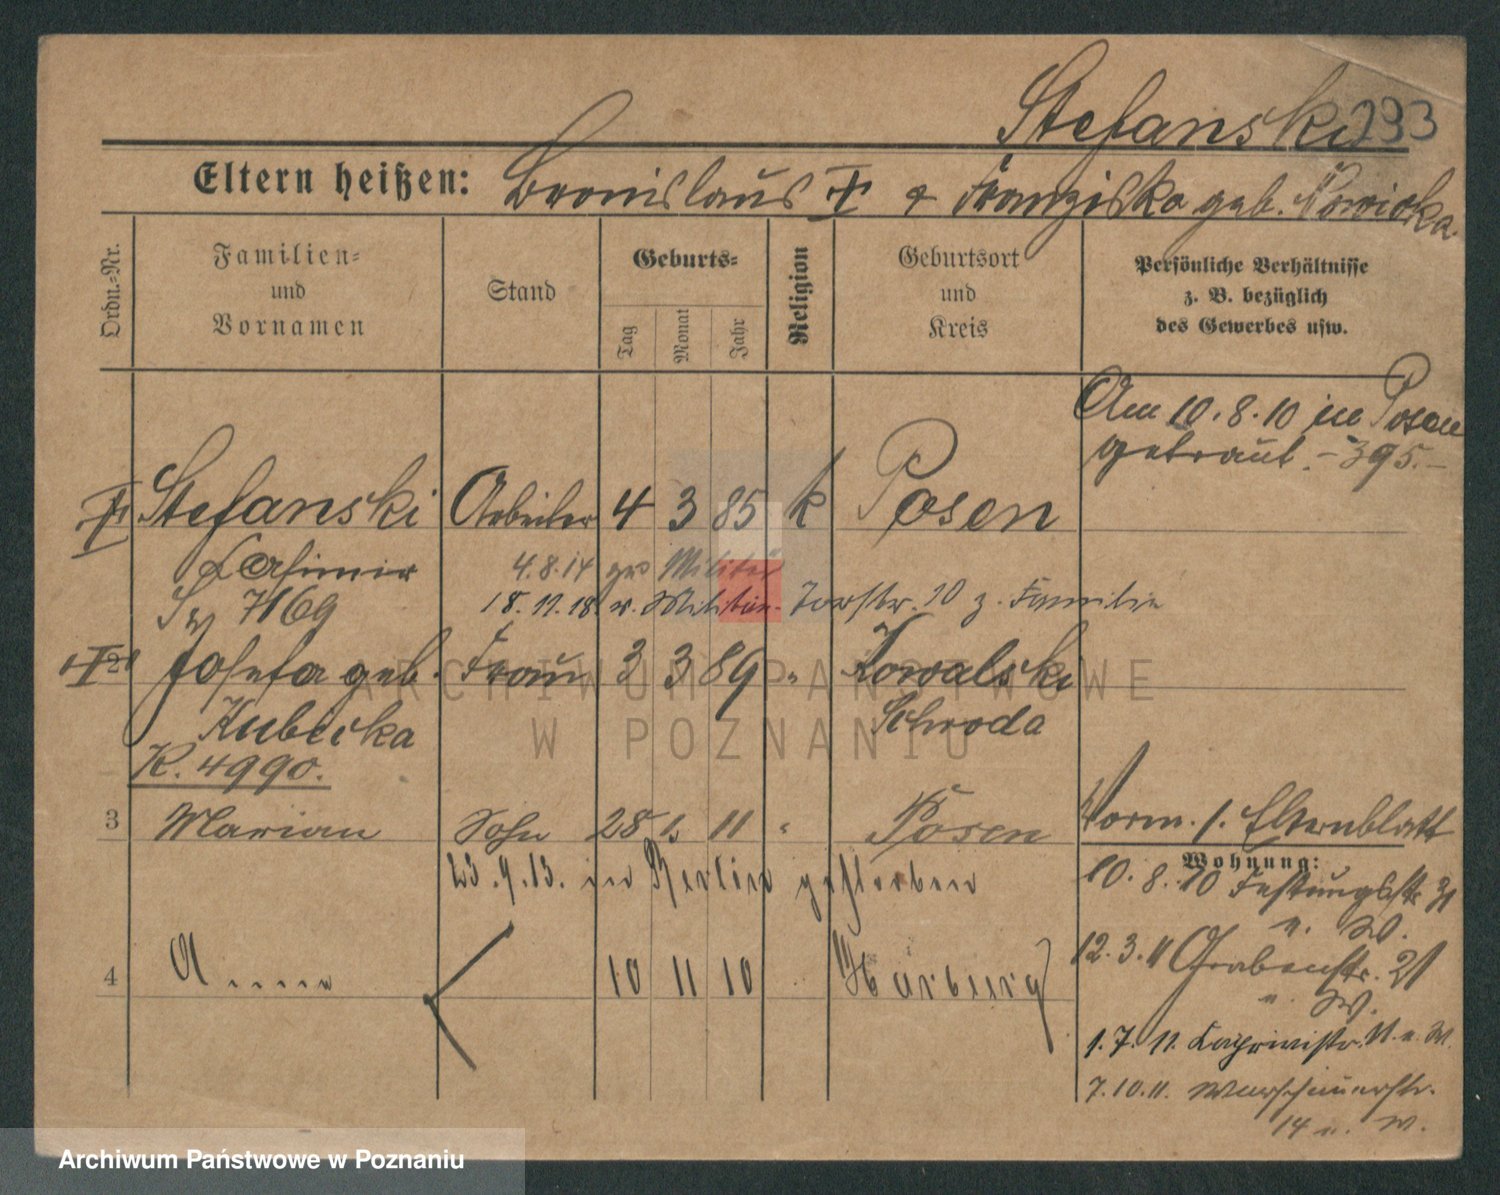 Stefanski 293
Eltern heißen: Bronislaus † & Franziska geb. Nowicka.
Ordn.-Nr.
Familien- und Vornamen
Stand
Geburts-
Tag
Monat
Jahr
Religion
Geburtsort und Kreis
Persönliche Verhältnisse z. B. bezüglich des Gewerbes usw.
Am 10.8.10 in Posen
getraut. - 395. -
Stefanski Arbeiter 4 3 85 k Posen
Kasimir 4.8.14 zum Militär
7169 18.11.18 v. Militär. Torstr. 10 z. Familie
2 Josefa geb. Frau 3 3 89 " Kowalski
Kubicka Schroda
K. 4990.
3 Marian Sohn 28 1. 11 " Posen
Vorm. s. Elternblatt
Wohnung:
23.9.13. in Berlin gestorben
10.8.10 Festungsstr. 31
n. W.
12.3.11 Grabenstr. 21
n. W.
4 Anna 10 11 10 Harburg
1.7.11. Kaprivistr. 11 n. W.
7.10.11. Warschauerstr.
14 n. W.
ARCHIWUM PAŃSTWOWE
W POZNANIU
Archiwum Państwowe w Poznaniu